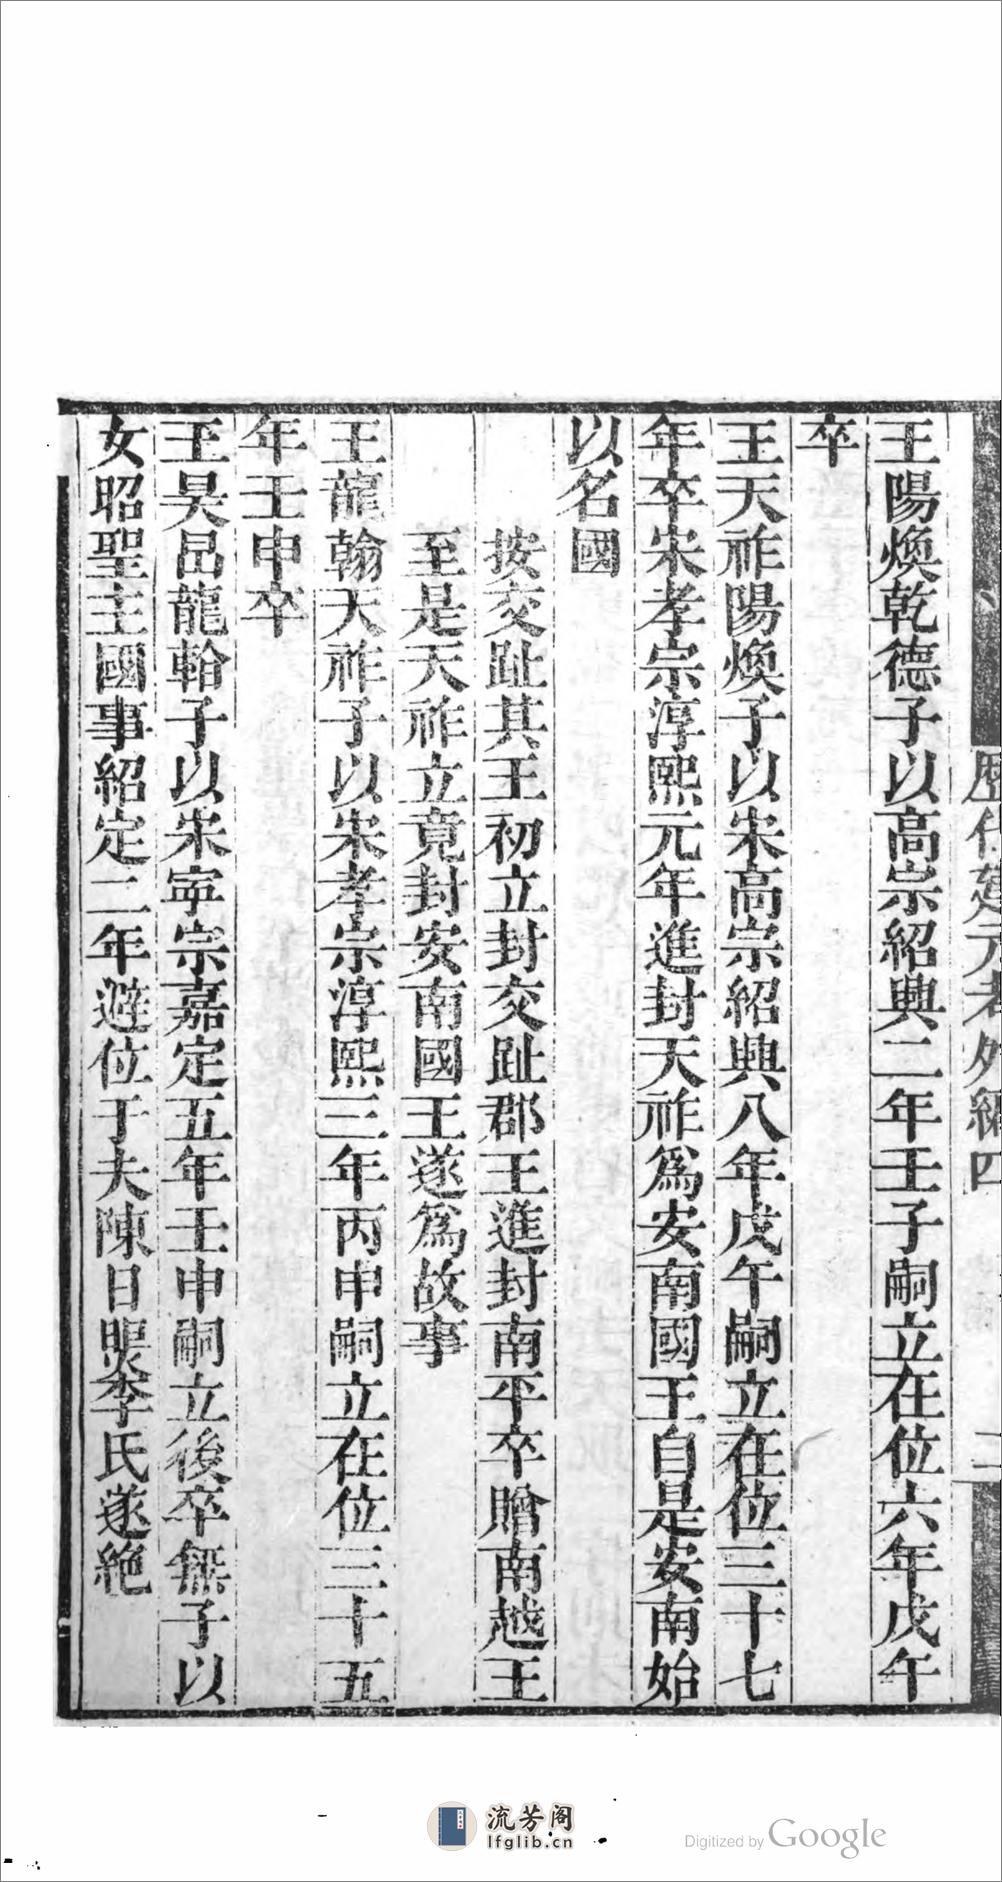 歴代建元考外編四
二
王陽煥乾德子以高宗紹興二年壬子嗣立在位六年戊午
卒
王天祚陽煥子以宋高宗紹興八年戊午嗣立在位三十七
年卒宋孝宗淳熙元年進封天祚爲安南國王自是安南始
以名國
按交趾其王初立封交趾郡王進封南平卒贈南越王
至是天祚立竟封安南國王遂爲故事
王龍翰天祚子以宋孝宗淳熙三年丙申嗣立在位三十五
年壬申卒
王昊旵龍翰子以宋寧宗嘉定五年壬申嗣立後卒無子以
女昭聖主國事紹定二年避位于夫陳日煚李氏遂絶
流芳阁
lfglib.cn
Digitized by Google